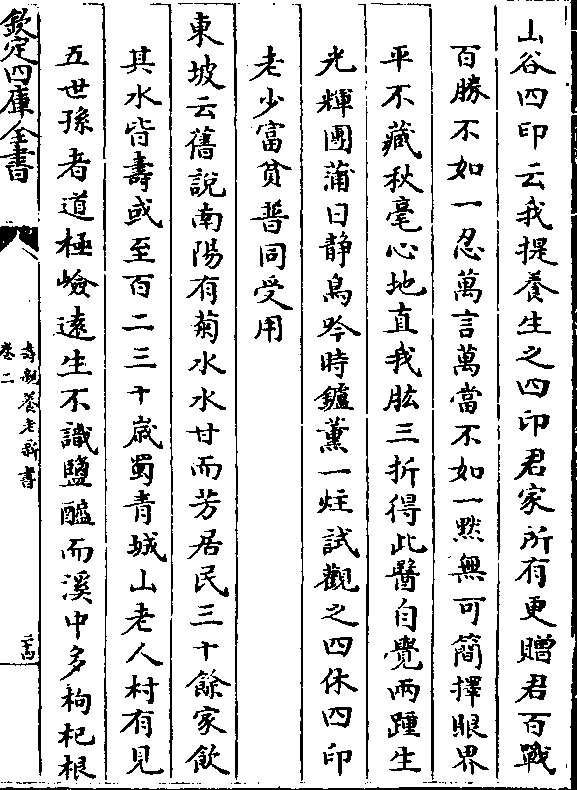 山谷四印云我提養生之四印君家所有更贈君百戰
百勝不如一忍萬言萬當不如一黙無可簡擇眼界
平不藏秋毫心地直我肱三折得此醫自覺兩踵生
光輝團蒲日静鳥吟時鑪薰一炷試觀之四休四印
老少富貧普同受用
東坡云舊説南陽有菊水水甘而芳居民三十餘家飲
其水皆壽或至百二三十嵗蜀青城山老人村有見
五世孫者道極嶮逺生不識鹽醯而溪中多枸杞根
欽定四庫全書
壽親養老新書
卷二